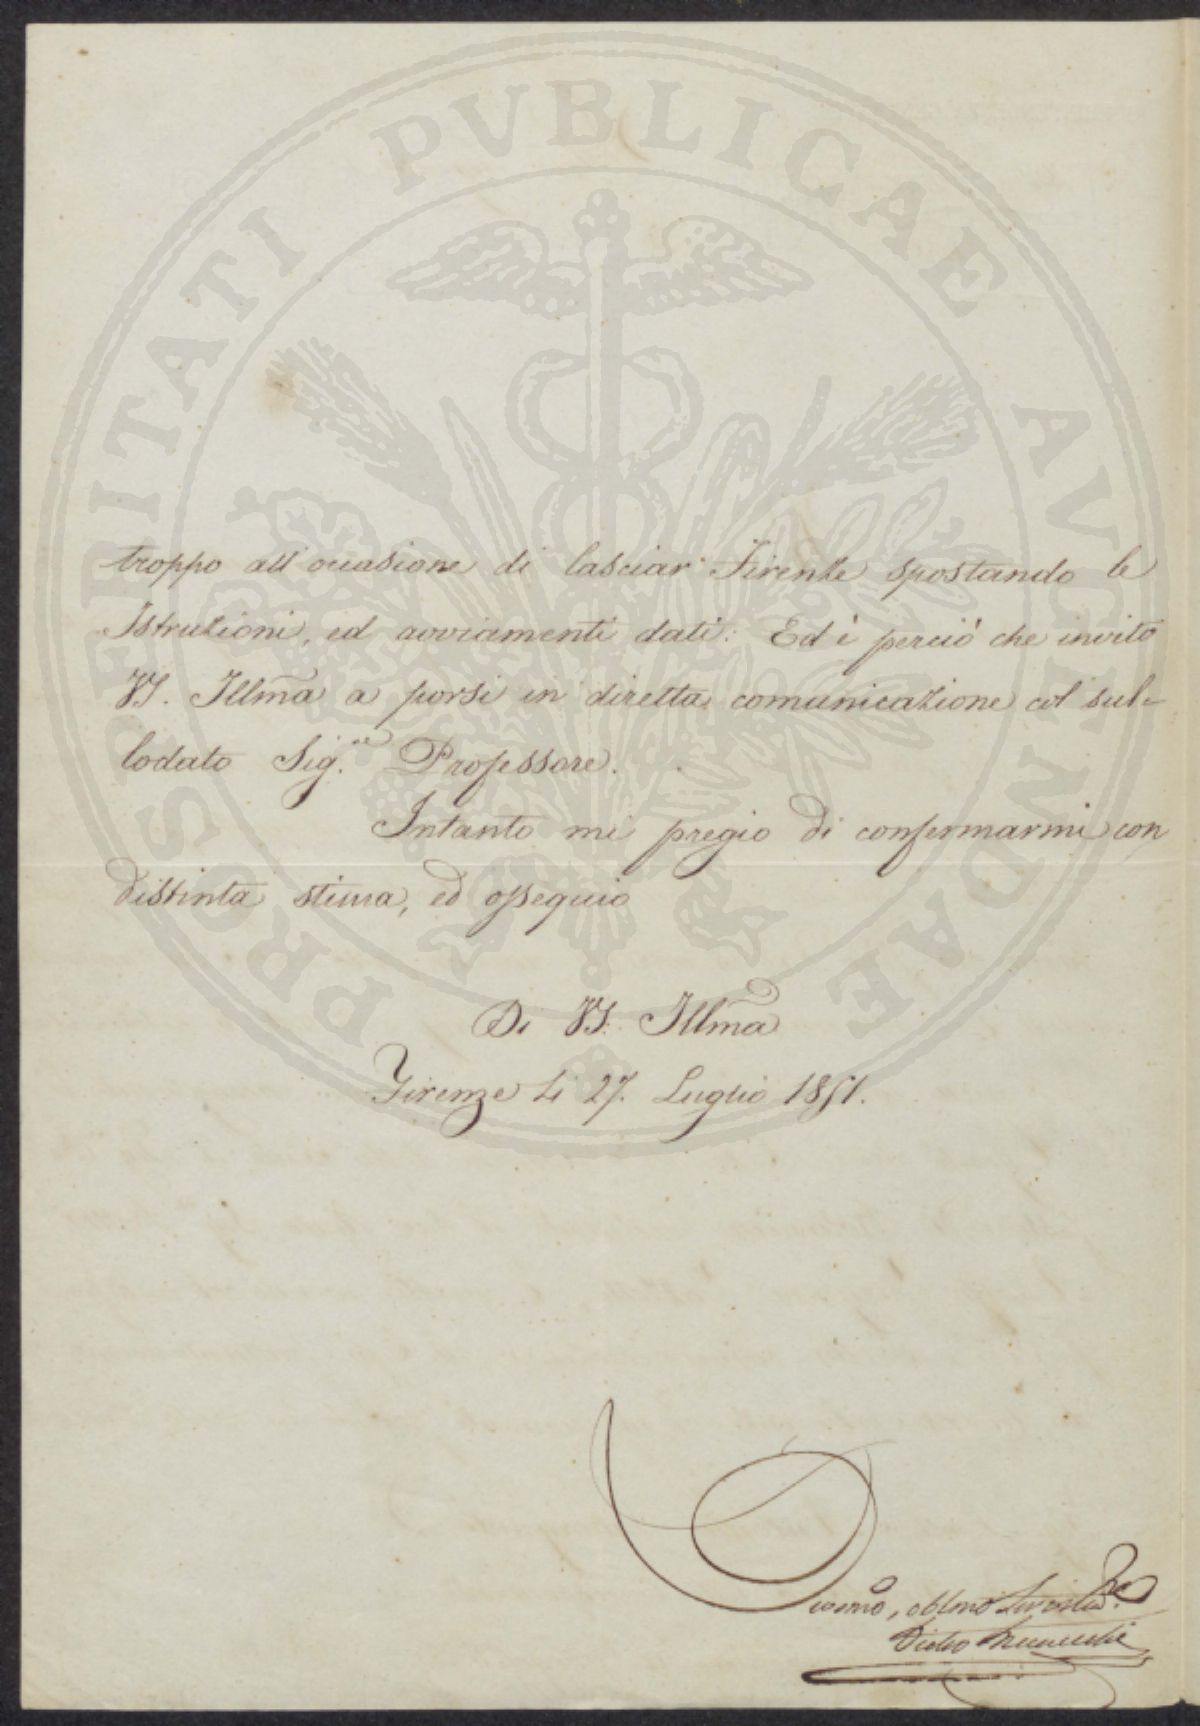 PROSPERITATI PVBLICAE AVGENDAE
troppo all'occasione di lasciar Firenze spostando le
Istruzioni, ed avviamenti dati. Ed è perciò che invito
VS. Illma a porsi in diretta comunicazione col sul-
lodato Sig.re Professore.
Intanto mi pregio di confermarmi con
distinta stima, ed ossequio
Di VS. Illma
Firenze li 27. Luglio 1851.
Devmo, obbmo Servitore
Pietro